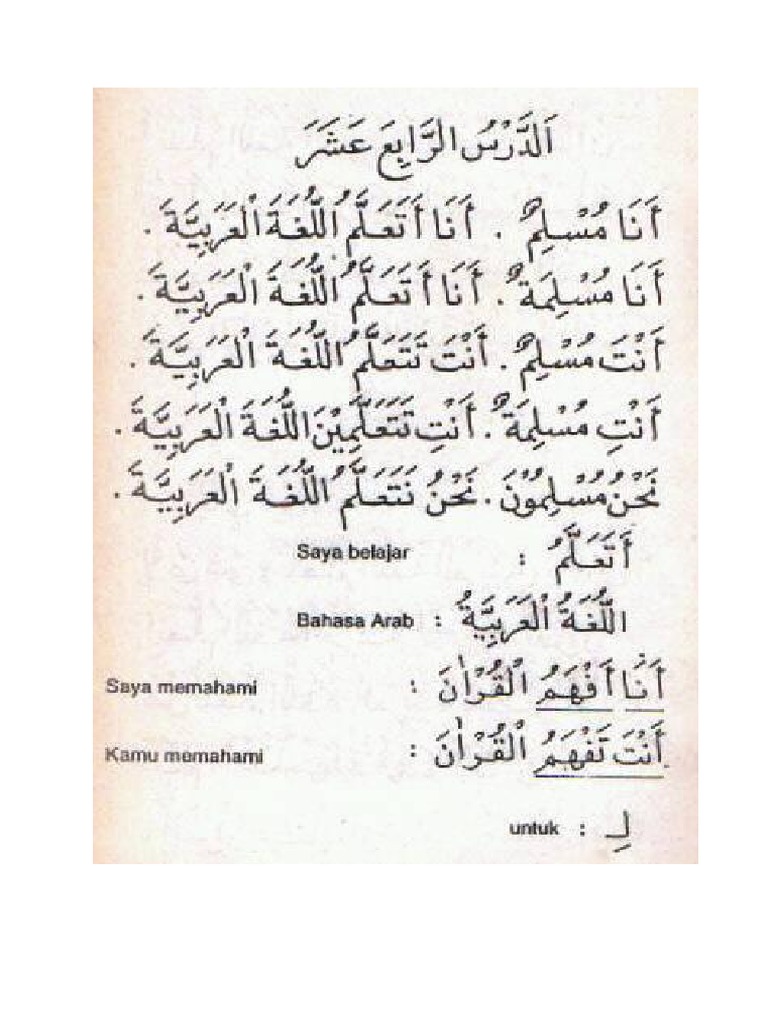 اَلدَّرْسُ الرَّابِعَ عَشَرَ
أَنَا مُسْلِمٌ . أَنَا أَتَعَلَّمُ اللُّغَةَ الْعَرَبِيَّةَ .
أَنَا مُسْلِمَةٌ . أَنَا أَتَعَلَّمُ اللُّغَةَ الْعَرَبِيَّةَ .
أَنْتَ مُسْلِمٌ . أَنْتَ تَتَعَلَّمُ اللُّغَةَ الْعَرَبِيَّةَ .
أَنْتِ مُسْلِمَةٌ . أَنْتِ تَتَعَلَّمِيْنَ اللُّغَةَ الْعَرَبِيَّةَ .
نَحْنُ مُسْلِمُوْنَ . نَحْنُ نَتَعَلَّمُ اللُّغَةَ الْعَرَبِيَّةَ .
أَتَعَلَّمُ : Saya belajar
اللُّغَةُ الْعَرَبِيَّةُ : Bahasa Arab
أَنَا أَفْهَمُ الْقُرْاٰنَ : Saya memahami
أَنْتَ تَفْهَمُ الْقُرْاٰنَ : Kamu memahami
لِـ : untuk